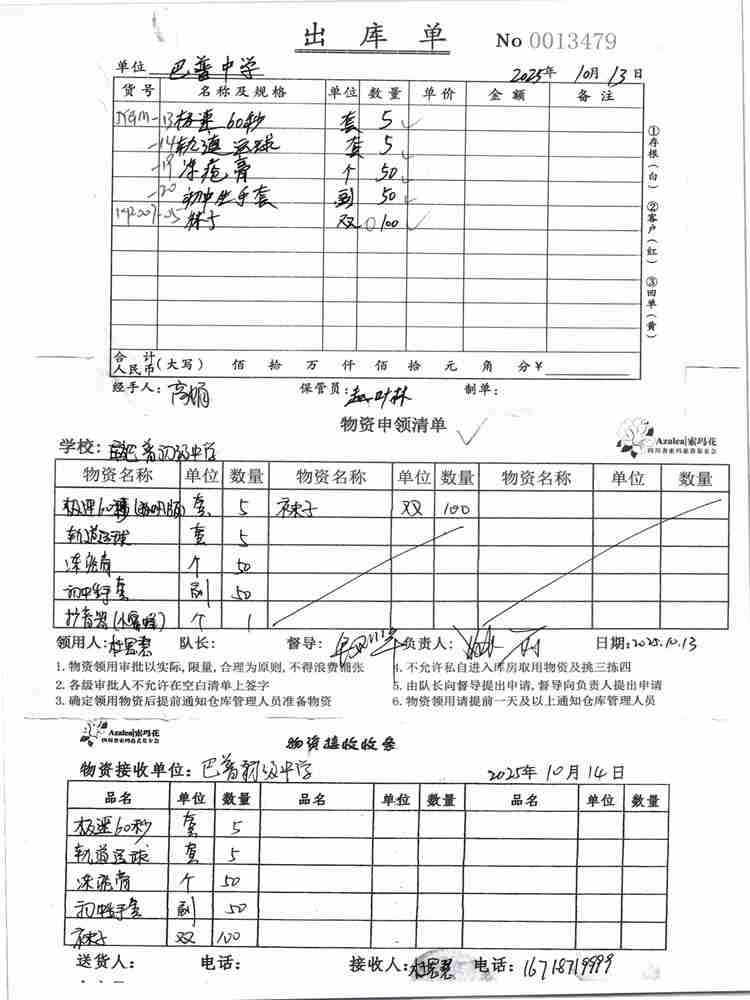 出库单 No 0013479
单位 巴普中学 2025年 10月 13日
货号 名称及规格 单位 数量 单价 金额 备注
-13 极速60秒 套 5
-14 轨道运球 套 5
-19 冻疮膏 个 50
-20 初中生手套 副 50
袜子 双 100
①存根(白) ②客户(红) ③回单(黄)
合计人民币(大写) 佰 拾 万 仟 佰 拾 元 角 分 ¥
经手人: 高娟 保管员: 制单:
物资申领清单
Azalea|索玛花
四川省索玛慈善基金会
学校: 巴普初级中学
物资名称 单位 数量 物资名称 单位 数量 物资名称 单位 数量
极速60秒 套 5 袜子 双 100
轨道运球 套 5
冻疮膏 个 50
初中生手套 副 50
扩音器(小蜜蜂) 个 1
领用人: 队长: 督导: 负责人: 日期: 2025.10.13
1.物资领用审批以实际,限量,合理为原则,不得浪费铺张 4.不允许私自进入库房取用物资及挑三拣四
2.各级审批人不允许在空白清单上签字 5.由队长向督导提出申请,督导向负责人提出申请
3.确定领用物资后提前通知仓库管理人员准备物资 6.物资领用请提前一天及以上通知仓库管理人员
Azalea|索玛花
四川省索玛慈善基金会
物资接收收条
物资接收单位: 巴普初级中学 2025年 10月 14日
品名 单位 数量 品名 单位 数量 品名 单位 数量
极速60秒 套 5
轨道运球 套 5
冻疮膏 个 50
初中生手套 副 50
袜子 双 100
送货人: 电话: 接收人: 电话: 16718719999